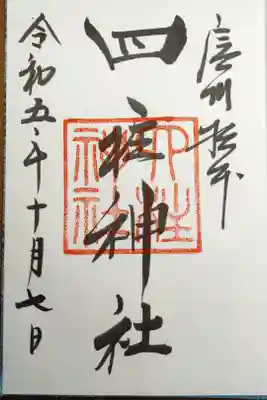 信州松本
四柱神社
四柱神社
令和五年十月七日